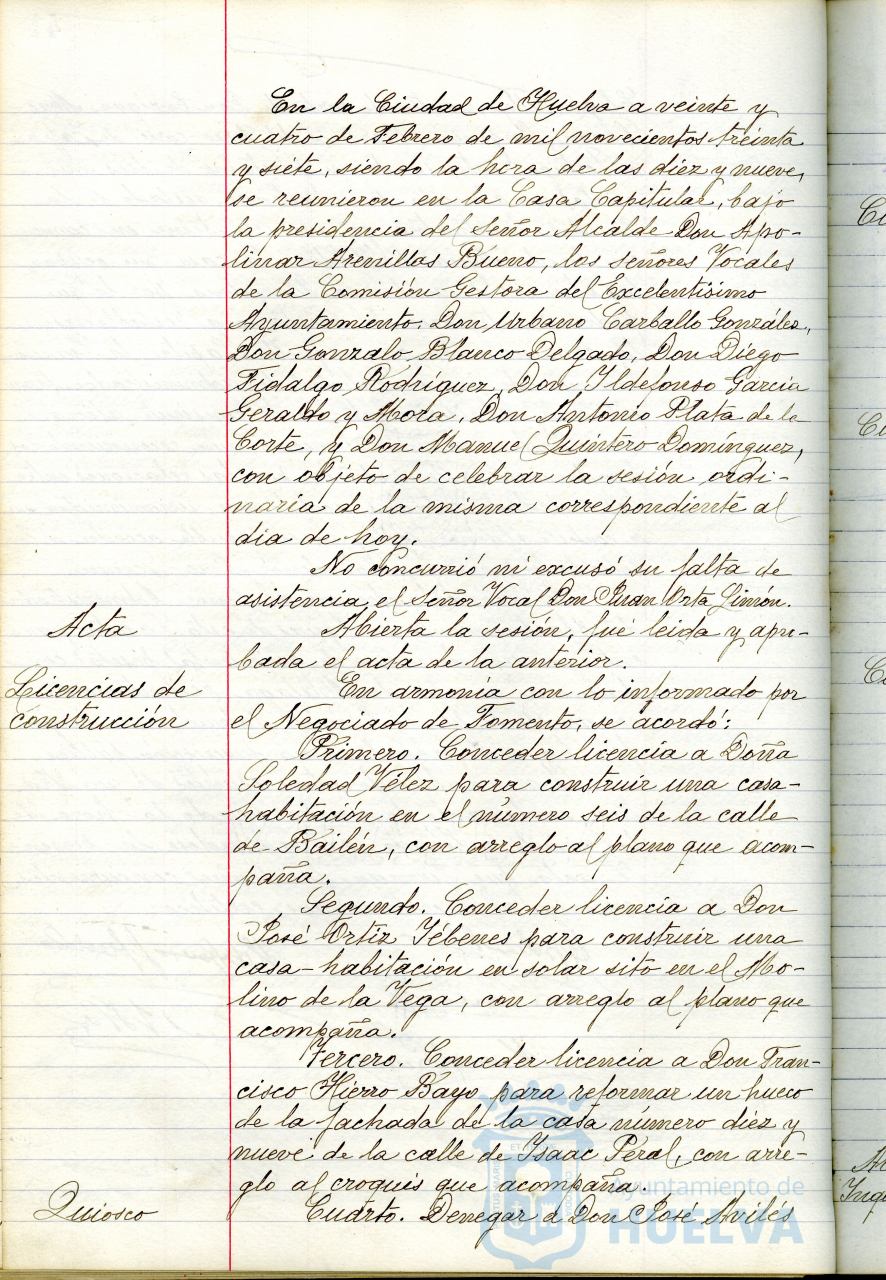 En la Ciudad de Huelva a veinte y
cuatro de Febrero de mil novecientos treinta
y siete, siendo la hora de las diez y nueve,
se reunieron en la Casa Capitular, bajo
la presidencia del Señor Alcalde Don Apo-
linar Arenillas Bueno, los señores Vocales
de la Comisión Gestora del Excelentísimo
Ayuntamiento. Don Urbano Carballo González,
Don Gonzalo Blanco Delgado, Don Diego
Fidalgo Rodríguez, Don Ildefonso García
Geraldo y Mora, Don Antonio Plata de la
Corte, y Don Manuel Quintero Domínguez,
con objeto de celebrar la sesión ordi-
naria de la misma correspondiente al
dia de hoy.
No concurrió ni excusó su falta de
asistencia el Señor Vocal Don Juan Orta Limón.
Acta
Abierta la sesión, fué leida y apro-
bada el acta de la anterior.
Licencias de
construcción
En armonía con lo informado por
el Negociado de Fomento, se acordó:
Primero. Conceder licencia a Doña
Soledad Vélez para construir una casa-
habitación en el número seis de la calle
de Bailén, con arreglo al plano que acom-
paña.
Segundo. Conceder licencia a Don
José Ortiz Yébenes para construir una
casa-habitación en solar sito en el Mo-
lino de la Vega, con arreglo al plano que
acompaña.
Tercero. Conceder licencia a Don Fran-
cisco Hierro Bayo para reformar un hueco
de la fachada de la casa número diez y
nueve de la calle de Isaac Peral, con arre-
glo al croquis que acompaña.
Quiosco
Cuarto. Denegar a Don José Avilés
Ayuntamiento de
HUELVA